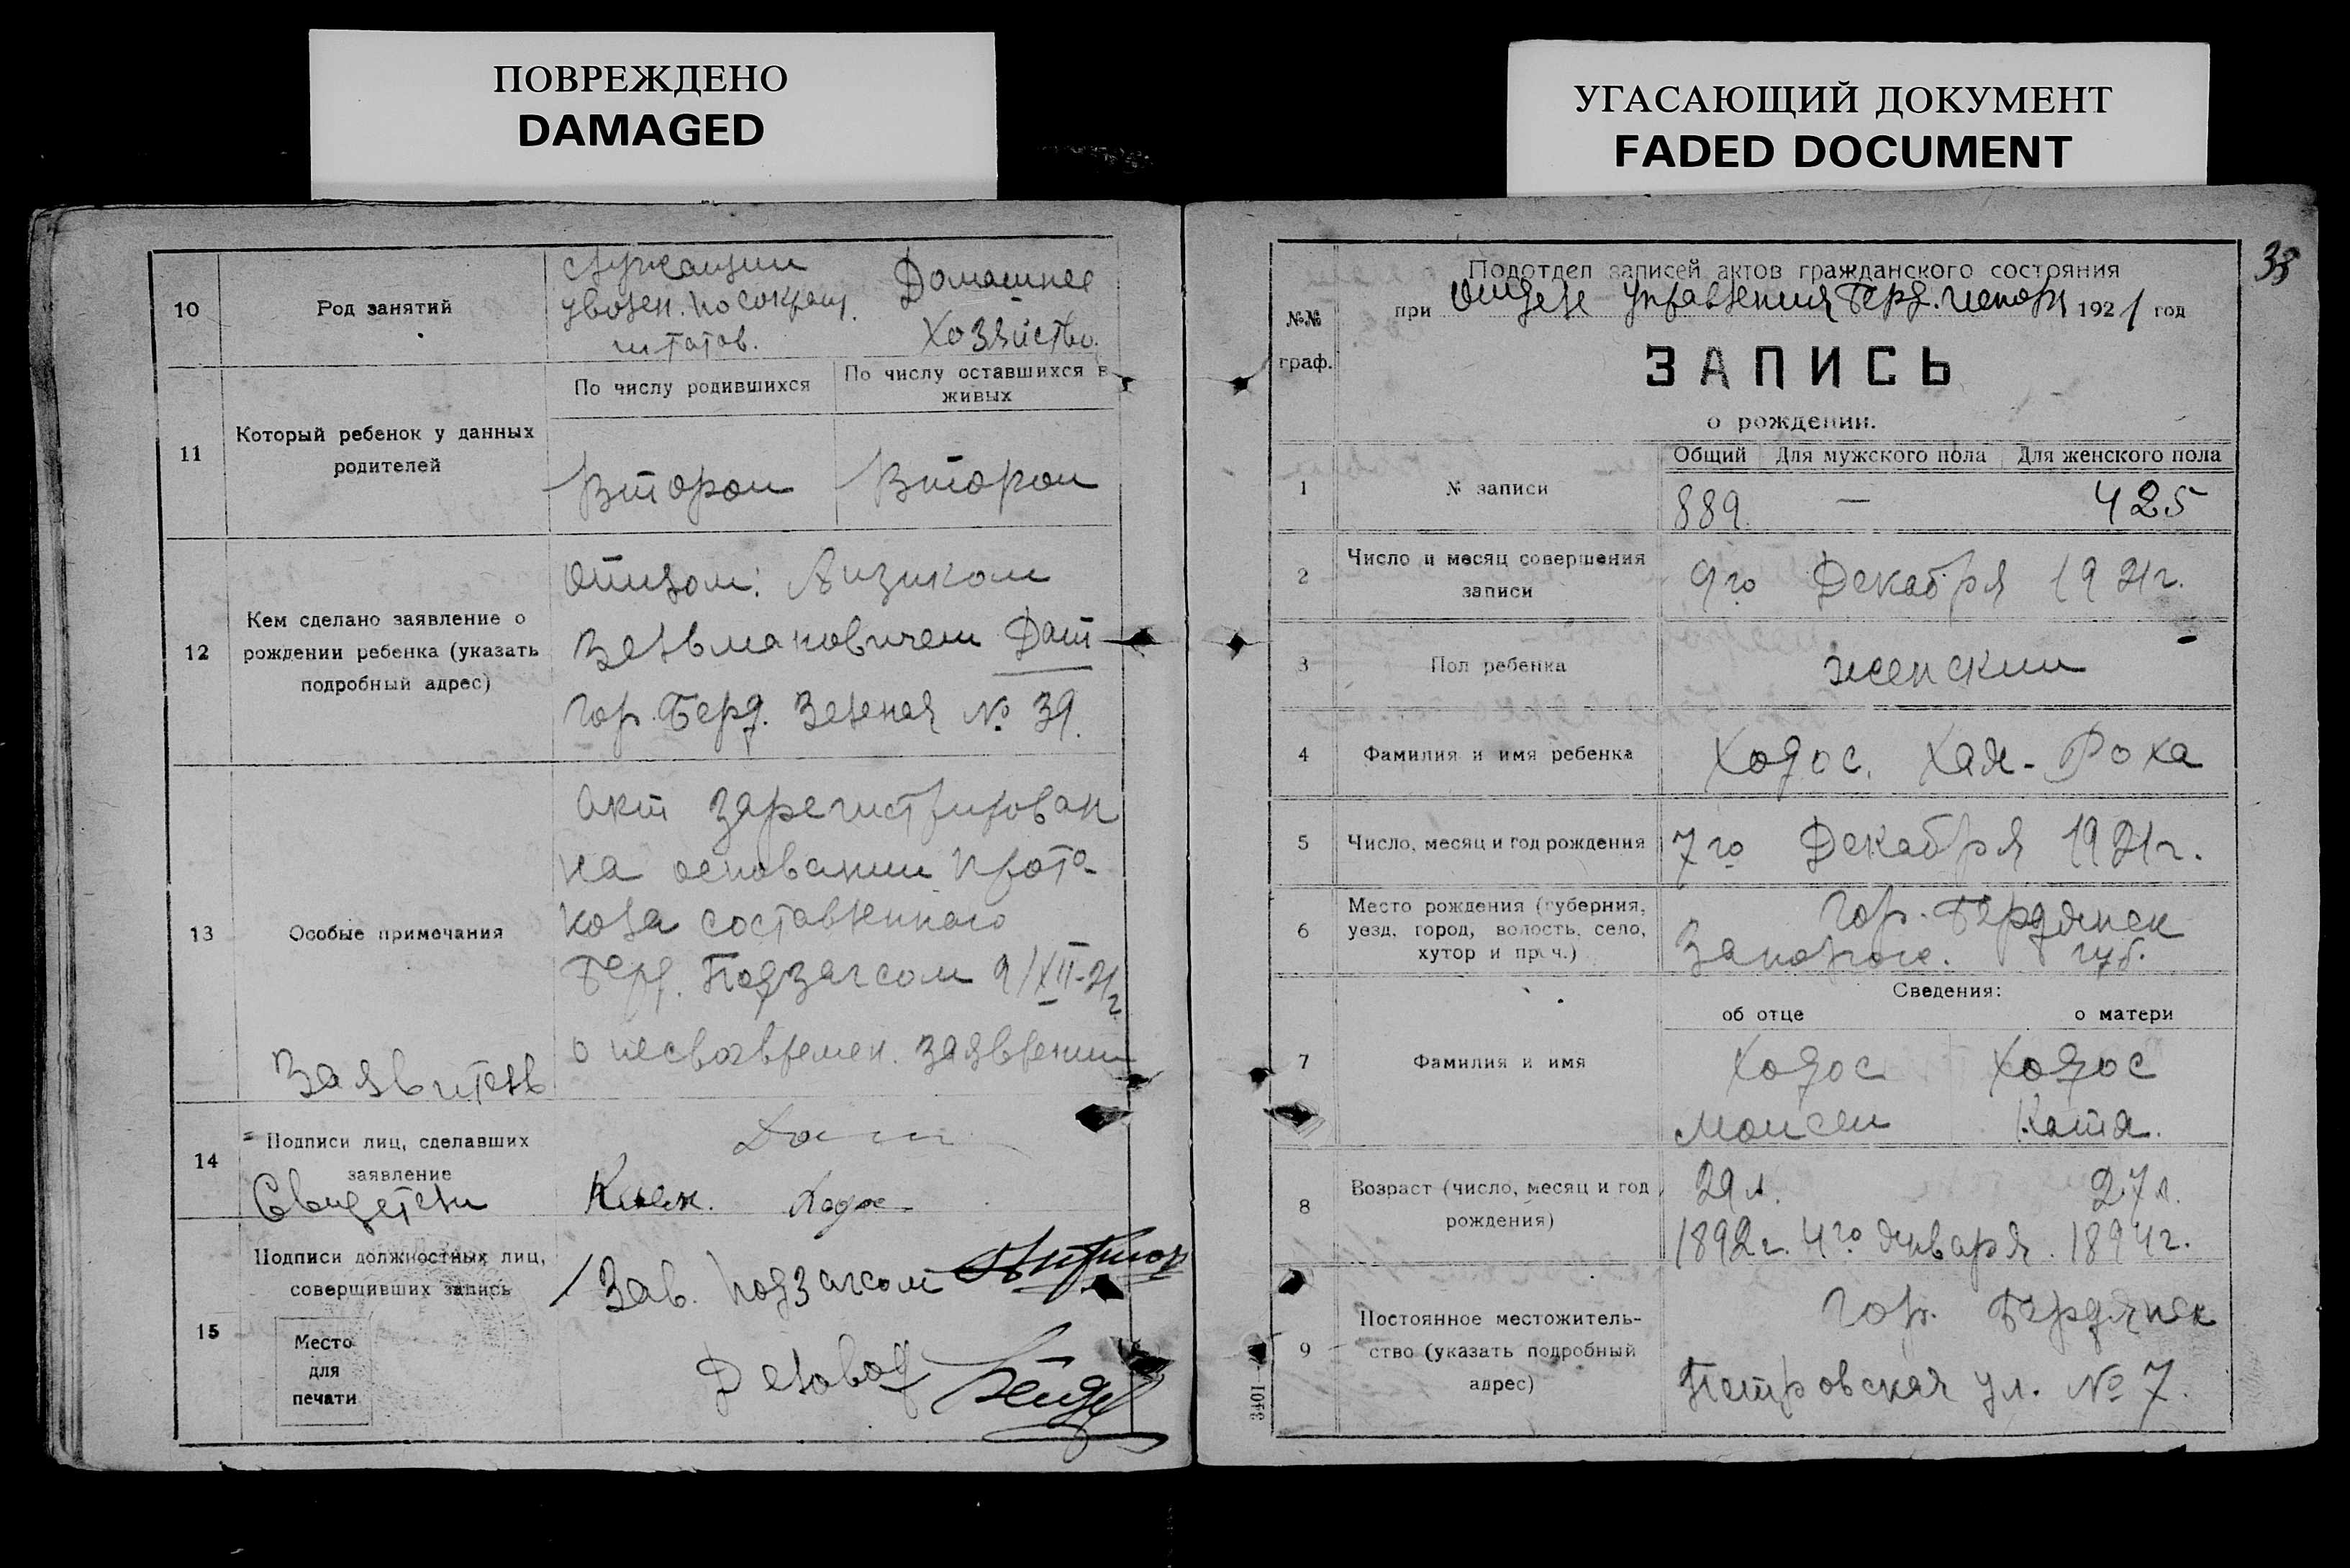 ПОВРЕЖДЕНО
DAMAGED
УГАСАЮЩИЙ ДОКУМЕНТ
FADED DOCUMENT
10
Род занятий
служащий
уволен. по сокращ.
штатов.
Домашнее
хозяйство.
11
Который ребенок у данных
родителей
По числу родившихся
По числу оставшихся в
живых
Второй
Второй
12
Кем сделано заявление о
рождении ребенка (указать
подробный адрес)
Отцом: Айзиком
Зельмановичем Даш
гор. Берд. Зеленая № 39.
13
Особые примечания
Акт зарегистрирован
на основании прото-
кола составленного
Берд. Подзагсом 9/XII-21г.
о несвоевремен. заявлении
Заявитель
14
Подписи лиц, сделавших
заявление
Свидетели
15
Подписи должностных лиц,
совершивших запись
Место
для
печати
Зав. подзагсом
Деловод
38
№№
граф.
Подотдел записей актов гражданского состояния
при Отделе Управления Берд. исполк 1921 год
ЗАПИСЬ
о рождении.
Общий Для мужского пола Для женского пола
1
№ записи
889. — 425
2
Число и месяц совершения
записи
9го Декабря 1921г.
3
Пол ребенка
женский
4
Фамилия и имя ребенка
Ходос. Хая-Роха
5
Число, месяц и год рождения
7го Декабря 1921г.
6
Место рождения (губерния,
уезд, город, волость, село,
хутор и проч.)
гор. Бердянск
Запорож. губ.
Сведения:
об отце о матери
7
Фамилия и имя
Ходос
Моисей
Ходос
Катя.
8
Возраст (число, месяц и год
рождения)
29 л. 27 л.
1892г. 4го января. 1894г.
9
Постоянное местожитель-
ство (указать подробный
адрес)
гор. Бердянск
Петровская ул. № 7.
3401